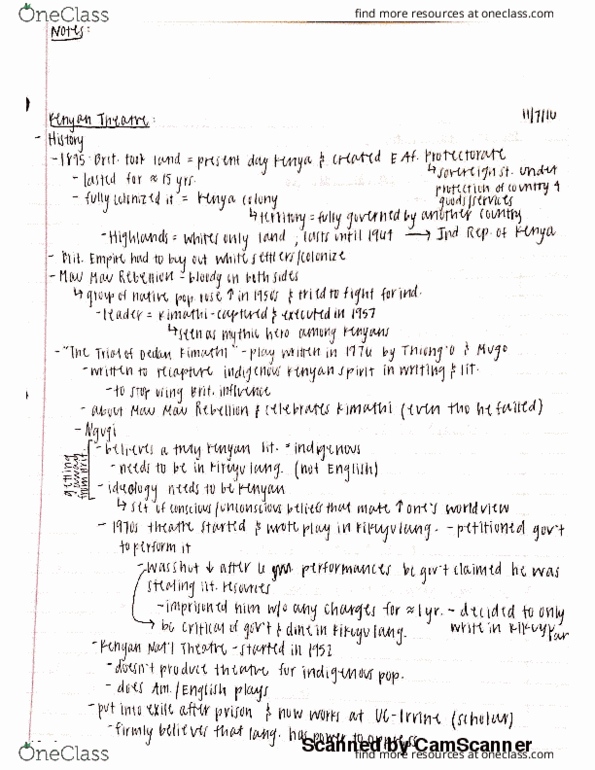 OneClass
find more resources at oneclass.com
Notes:
Kenyan Theatre:
11/7/16
- History
- 1895: Brit. took land = present day Kenya & created E Af. Protectorate
↳ sovereign st. under
protection of country 4
goods/services
- lasted for ≈ 15 yrs.
- fully colonized it = Kenya colony
↳ territory = fully governed by another country
- Highlands = whites only land, lasts until 1964 → Ind Rep. of Kenya
- Brit. Empire had to buy out white settlers/colonize
- Mau Mau Rebellion - bloody on both sides
↳ group of native pop rose ↑ in 1950s & tried to fight for ind.
- leader = Kimathi - captured & executed in 1957
↳ seen as mythic hero among Kenyans
- "The Trial of Dedan Kimathi" - play written in 1976 by Thiong'o & Mugo
- written to recapture indigenous Kenyan spirit in writing & lit.
- to stop using Brit. influence
- about Mau Mau Rebellion & celebrates Kimathi (even tho he failed)
- Ngugi
getting away from Brit.
- believes a truly Kenyan lit. = indigenous
- needs to be in Kikuyu lang. (not English)
- ideology needs to be Kenyan
↳ set of conscious/unconscious beliefs that make ↑ one's worldview
- 1970s theatre started & wrote play in Kikuyu lang. - petitioned gov't
to perform it
- was shut ↓ after 6 performances bc gov't claimed he was
stealing lit. resources
- imprisoned him w/o any charges for ≈ 1 yr. - decided to only
write in Kikuyu
bc critical of gov't & done in Kikuyu lang.
- Kenyan Nat'l Theatre - started in 1952
- doesn't produce theatre for indigenous pop.
- does Am./English plays
- put into exile after prison & now works at UC-Irvine (scholar)
- firmly believes that lang. has power to oppress
Scanned by CamScanner
OneClass
find more resources at oneclass.com